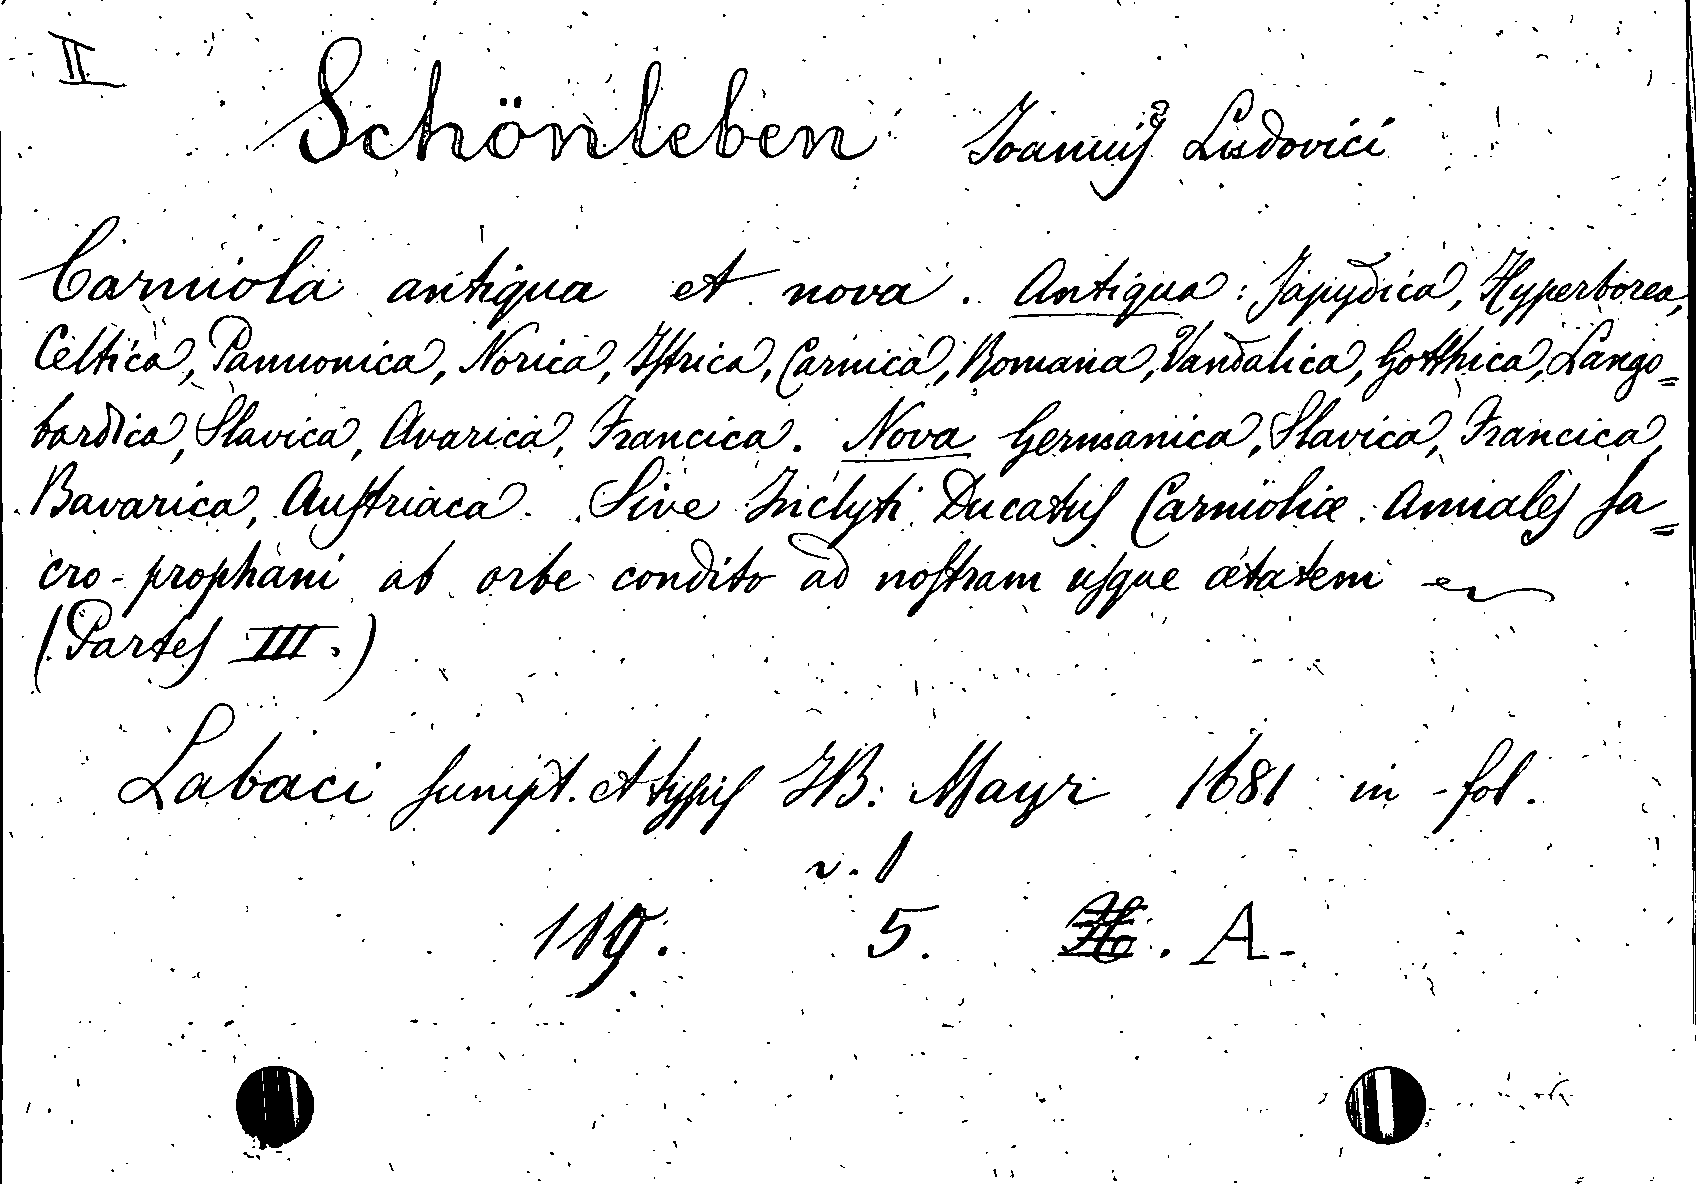 II
Schönleben Joannis Ludovici
Carniola antiqua et nova. Antiqua: Japydica, Hyperborea,
Celtica, Pannonica, Norica, Iſtrica, Carnica, Romana, Vandalica, Gotthica, Lango=
bardica, Slavica, Avarica, Francica. Nova Germanica, Slavica, Francica,
Bavarica, Auſtriaca. Sive Inclyti Ducatus Carnioliæ Annales ſa=
cro-prophani ab orbe condito ad noſtram uſque ætatem
(Partes III.)
Labaci ſumpt. et typis J.B. Mayr 1681 in-fol.
v. 1
119. 5. A.